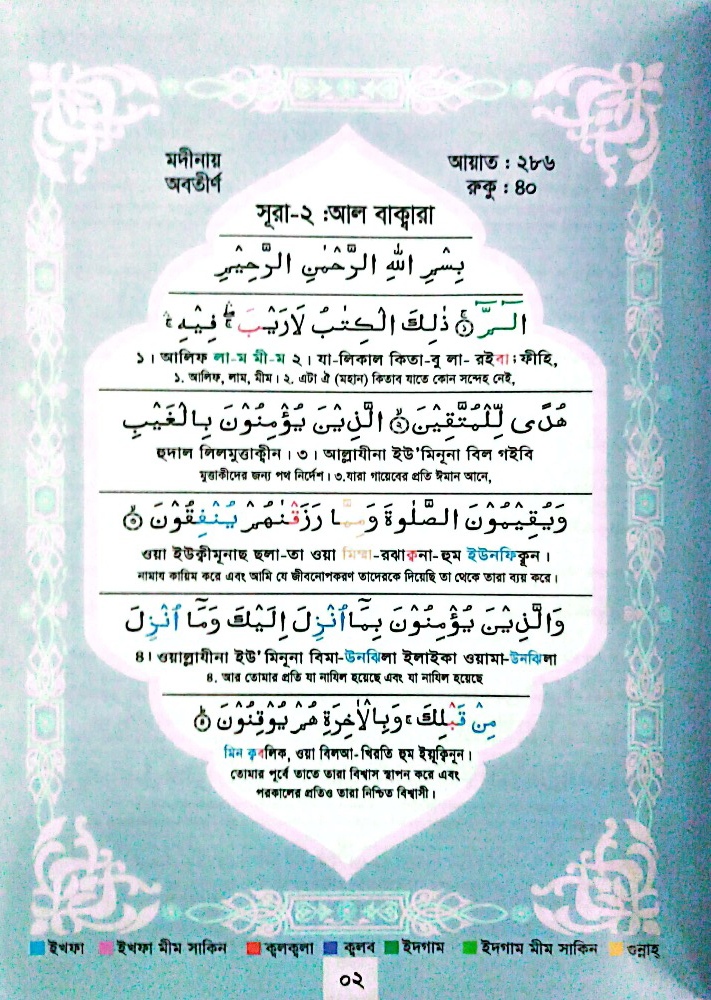 মদীনায় অবতীর্ণ
আয়াত : ২৮৬
রুকু : ৪০
সূরা-২ :আল বাক্বারা
بِسْمِ اللّٰهِ الرَّحْمٰنِ الرَّحِيْمِ
الٓمّٓ ۚ﴿١﴾ ذٰلِكَ الْكِتٰبُ لَا رَيْبَ ۛۚ فِيْهِ ۛۚ
১। আলিফ লা-ম মী-ম ২। যা-লিকাল কিতা-বু লা- রইবা; ফীহি,
১. আলিফ, লাম, মীম। ২. এটা ঐ (মহান) কিতাব যাতে কোন সন্দেহ নেই,
هُدًى لِّلْمُتَّقِيْنَ ۙ﴿٢﴾ الَّذِيْنَ يُؤْمِنُوْنَ بِالْغَيْبِ
হুদাল লিলমুত্তাক্বীন। ৩। আল্লাযীনা ইউ'মিনূনা বিল গইবি
মুত্তাকীদের জন্য পথ নির্দেশ। ৩.যারা গায়েবের প্রতি ঈমান আনে,
وَيُقِيْمُوْنَ الصَّلٰوةَ وَمِمَّا رَزَقْنٰهُمْ يُنْفِقُوْنَ ۙ﴿٣﴾
ওয়া ইউক্বীমূনাছ ছলা-তা ওয়া মিম্মা-রঝাক্বনা-হুম ইউনফিক্বূন।
নামায কায়িম করে এবং আমি যে জীবনোপকরণ তাদেরকে দিয়েছি তা থেকে তারা ব্যয় করে।
وَالَّذِيْنَ يُؤْمِنُوْنَ بِمَآ اُنْزِلَ اِلَيْكَ وَمَآ اُنْزِلَ
৪। ওয়াল্লাযীনা ইউ'মিনূনা বিমা-উনঝিলা ইলাইকা ওয়ামা-উনঝিলা
৪. আর তোমার প্রতি যা নাযিল হয়েছে এবং যা নাযিল হয়েছে
مِنْ قَبْلِكَ ۚ وَبِالْاٰخِرَةِ هُمْ يُوْقِنُوْنَ ﴿٤﴾
মিন ক্ববলিক, ওয়া বিলআ-খিরতি হুম ইয়ূক্বিনূন।
তোমার পূর্বে তাতে তারা বিশ্বাস স্থাপন করে এবং
পরকালের প্রতিও তারা নিশ্চিত বিশ্বাসী।
ইখফা ইখফা মীম সাকিন ক্বলক্বলা ক্বলব ইদগাম ইদগাম মীম সাকিন গুন্নাহ্
০২